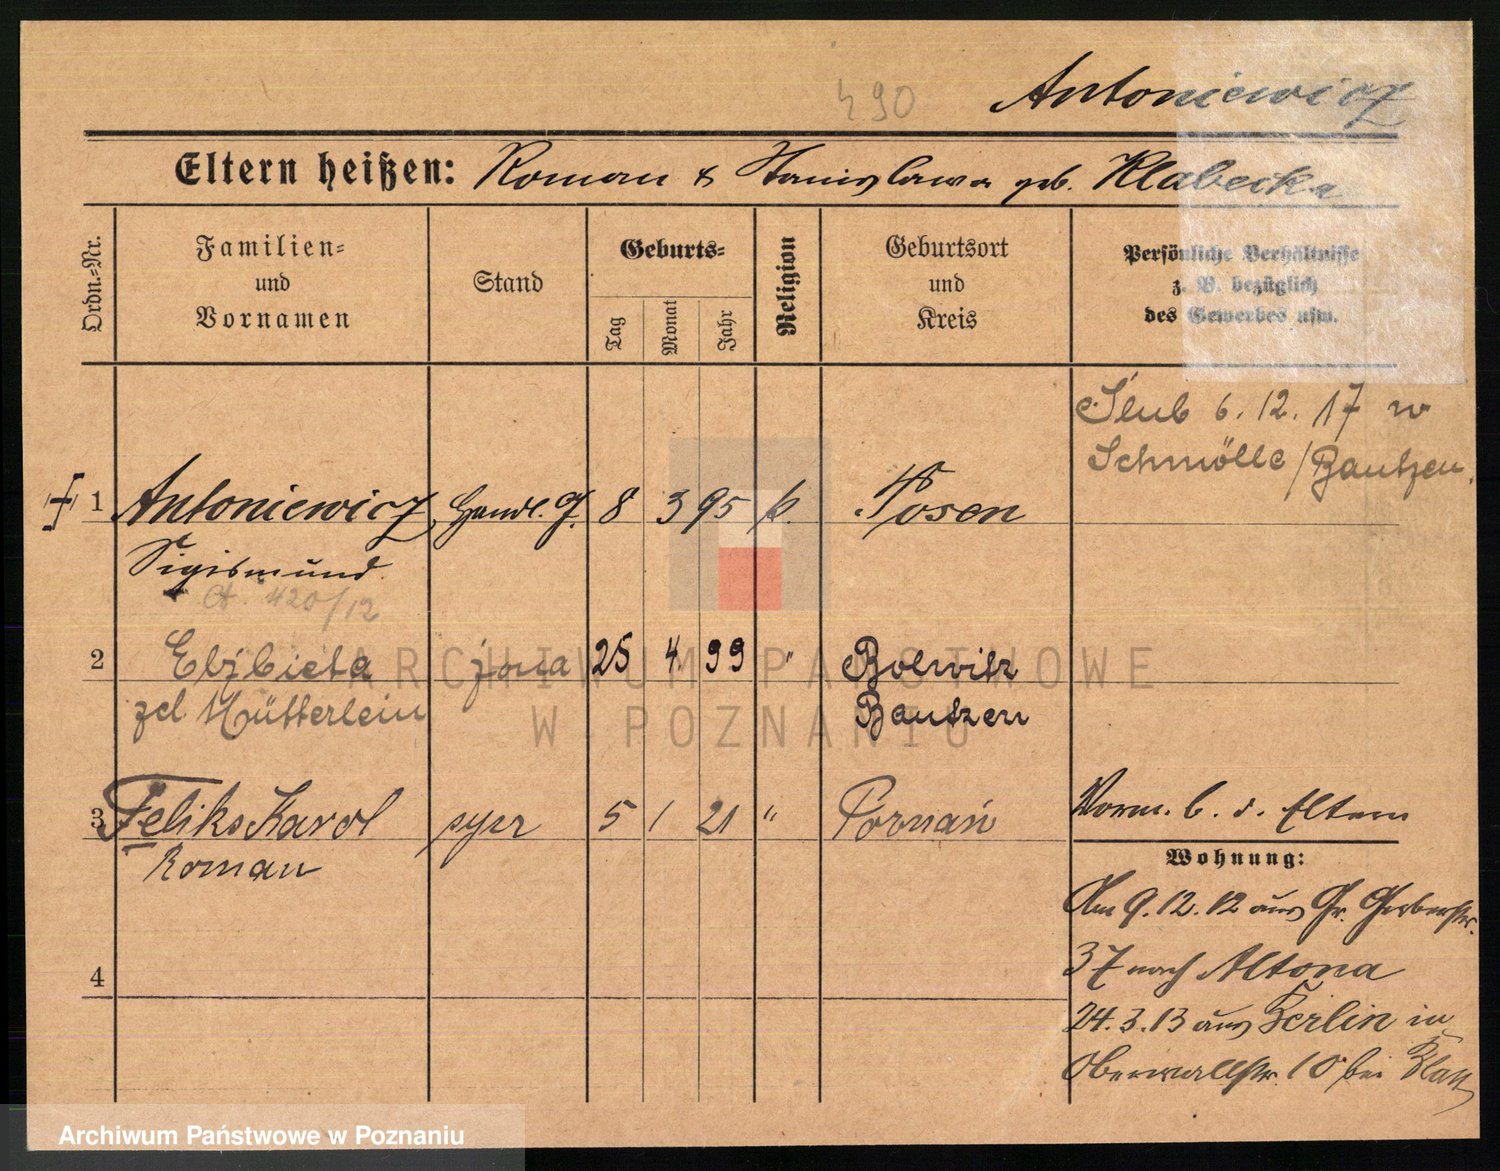 490
Antoniewicz
Eltern heißen: Roman & Stanislawa geb. Klabecka
Ordn.=Nr.
Familien=
und
Vornamen
Stand
Geburts=
Tag
Monat
Jahr
Religion
Geburtsort
und
Kreis
Persönliche Verhältnisse
z. B. bezüglich
des Gewerbes usw.
Ślub 6. 12. 17 w
Schmölle / Bautzen.
1 Antoniewicz Handl. G. 8 3 95 k. Posen
Sigismund
A. 420/12
2 Elżbieta żona 25 4. 99 " Bolwitz
zd Hütterlein Bautzen
3 Feliks Karol syn 5 1 21 " Poznań
Roman
Vorm. b. d. Eltern
Wohnung:
Am 9. 12. 12 aus Gr. Gerberstr.
37 nach Altona
24. 3. 13 aus Berlin in
Oberwallstr. 10 bei
4
ARCHIWUM PAŃSTWOWE
W POZNANIU
Archiwum Państwowe w Poznaniu